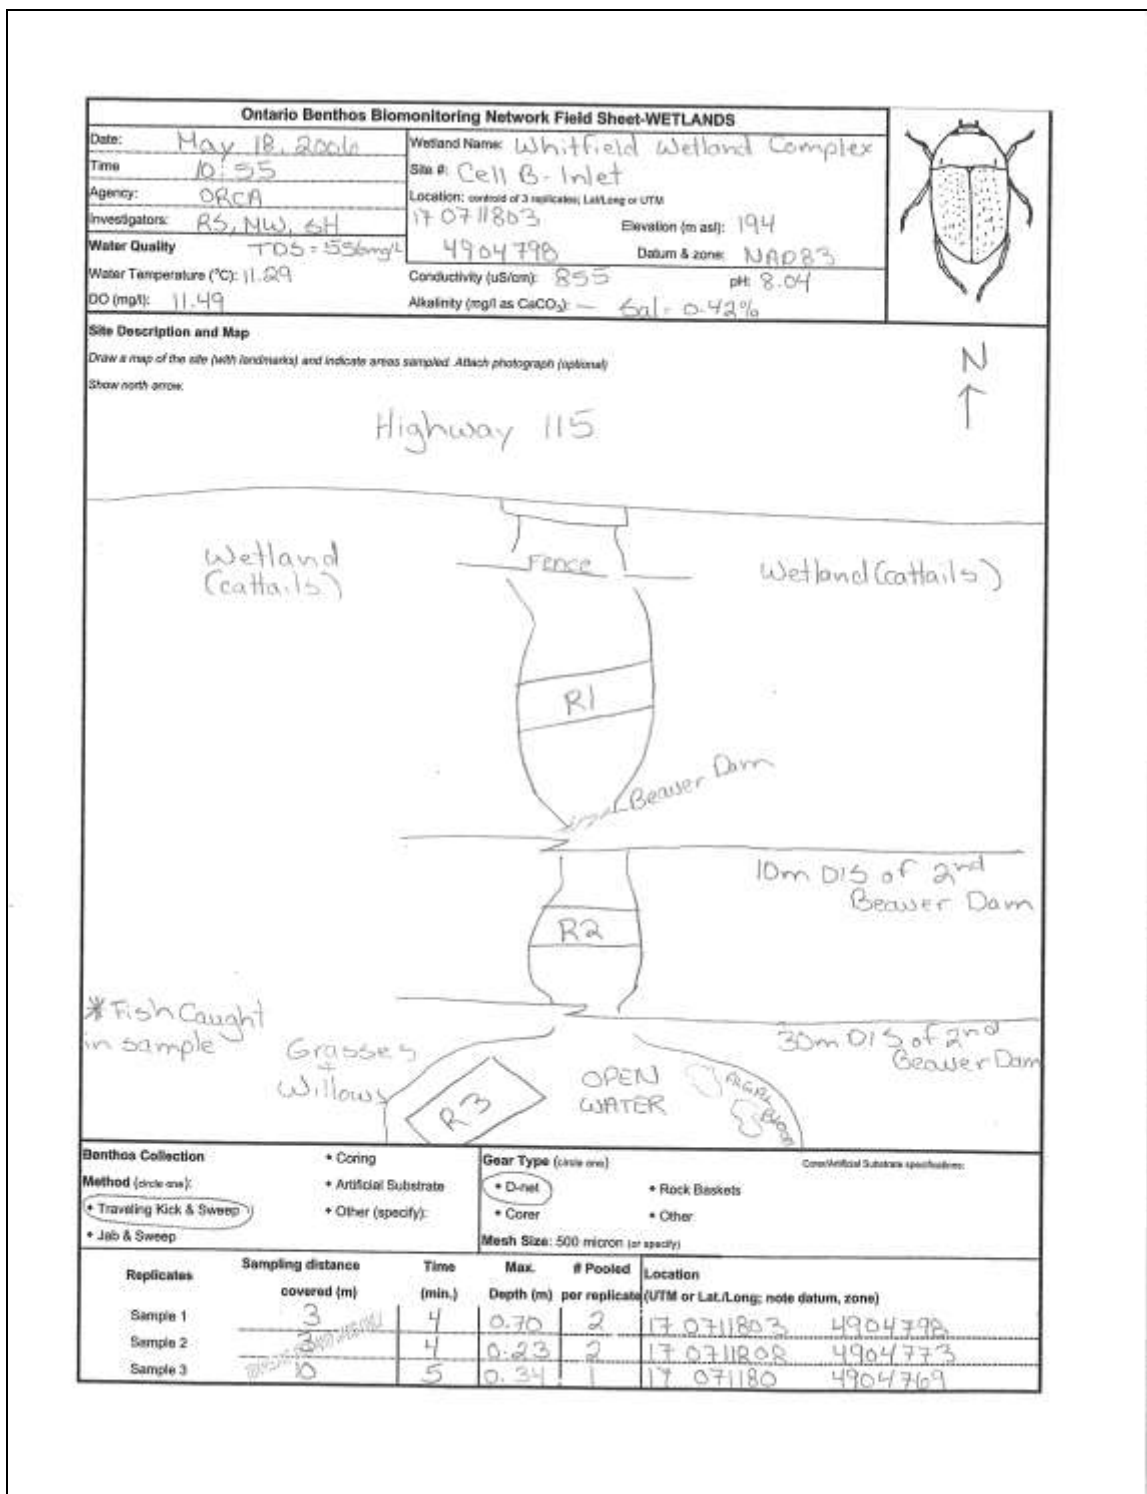 Ontario Benthos Biomonitoring Network Field Sheet-WETLANDS
Date: May 18, 2006
Wetland Name: Whitfield Wetland Complex
Time 10:55
Site #: Cell B-Inlet
Agency: ORCA
Location: centroid of 3 replicates; Lat/Long or UTM
Investigators: RS, MW, SH
17 0711803
Elevation (m asl): 194
Water Quality TDS = 556mg/L
4904798
Datum & zone: NAD83
Water Temperature (°C): 11.29
Conductivity (uS/cm): 855
pH: 8.04
DO (mg/l): 11.49
Alkalinity (mg/l as CaCO3): — Sal = 0.42%
Site Description and Map
Draw a map of the site (with landmarks) and indicate areas sampled. Attach photograph (optional)
Show north arrow.
N
Highway 115
Wetland
(cattails)
Fence
Wetland (cattails)
R1
Beaver Dam
10m D/S of 2nd
Beaver Dam
R2
*Fish Caught
in sample
30m D/S of 2nd
Beaver Dam
Grasses
+
Willows
R3
OPEN
WATER
ALGAL
Bloom
Benthos Collection
Method (circle one):
• Traveling Kick & Sweep
• Jab & Sweep
• Coring
• Artificial Substrate
• Other (specify):
Gear Type (circle one)
• D-net
• Corer
• Rock Baskets
• Other
Corer/Artificial Substrate specifications:
Mesh Size: 500 micron (or specify)
Replicates
Sampling distance covered (m)
Time (min.)
Max. Depth (m)
# Pooled per replicate
Location (UTM or Lat./Long; note datum, zone)
Sample 1 3 4 0.70 2 17 0711803 4904798
Sample 2 3 4 0.23 2 17 0711808 4904773
Sample 3 10 5 0.34 1 17 071180 4904769